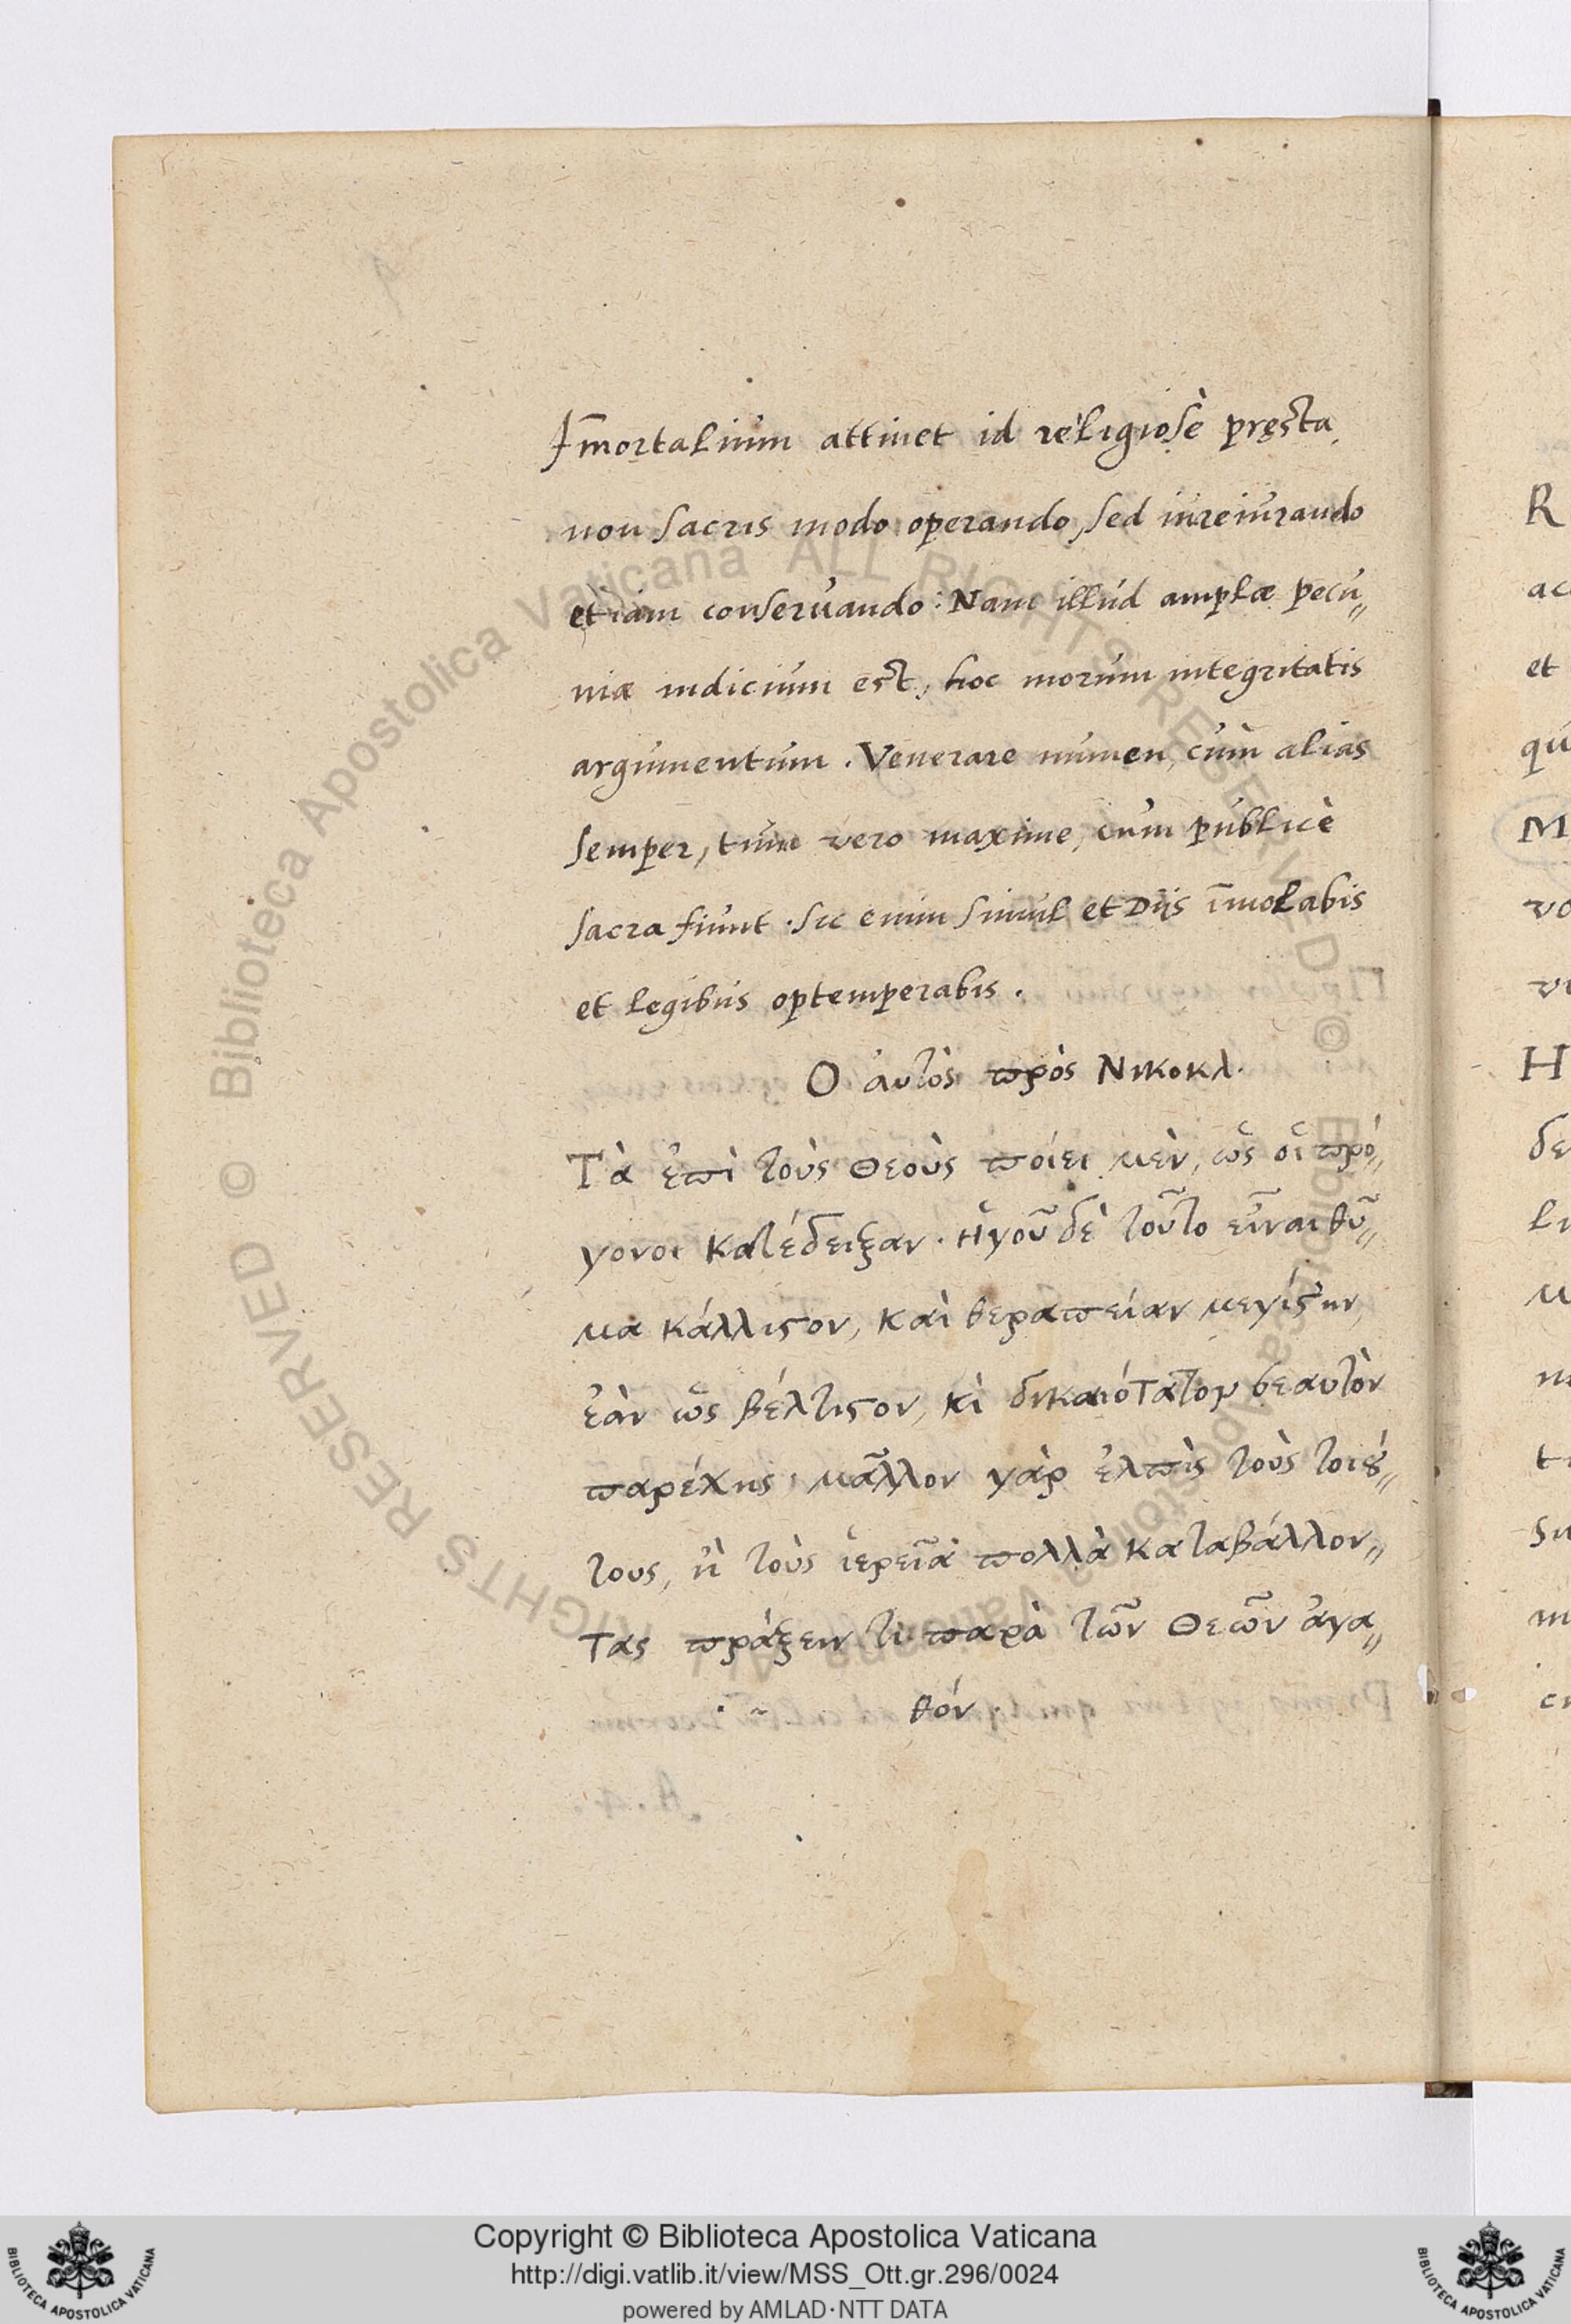 Im̄ortalium attinet id religiosè pręsta,
non sacris modo operando, sed iureiurando
etiam conseruando: Nam illud amplæ pecu„
niæ indicium est, hoc morum integritatis
argumentum. Venerare numen, cum alias
semper, tum vero maxime, cum publicè
sacra fiunt. sic enim simul et Diis im̄olabis
et legibus optemperabis.
Ο αὐτὸς πρὸς Νικοκλ.
Τὰ ἐπὶ τοὺς Θεοὺς ποίει μὲν, ὡς οἱ πρό„
γονοι κατέδειξαν. ἡγοῦ δὲ τοῦτο εἶναι θῦ„
μα κάλλιστον, καὶ θεραπείαν μεγίστην,
ἐὰν ὡς βέλτιστον, κὶ δικαιότατον σεαυτὸν
παρέχης, μᾶλλον γὰρ ἐλπὶς τοὺς τοιȣ́„
τους, ἢ τοὺς ἱερεῖα πολλὰ καταβάλλον„
τας πράξειν τὶ παρὰ τῶν Θεῶν ἀγα„
θόν.
R
ac
et
qu
M
vo
vi
H
de
li
Su
Biblioteca Apostolica Vaticana ALL RIGHTS RESERVED ©
Copyright © Biblioteca Apostolica Vaticana
http://digi.vatlib.it/view/MSS_Ott.gr.296/0024
powered by AMLAD·NTT DATA
BIBLIOTECA APOSTOLICA VATICANA
BIBLIOTECA APOSTOLICA VATICANA